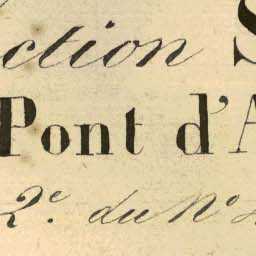 ction S
Pont d'A
2e. du No